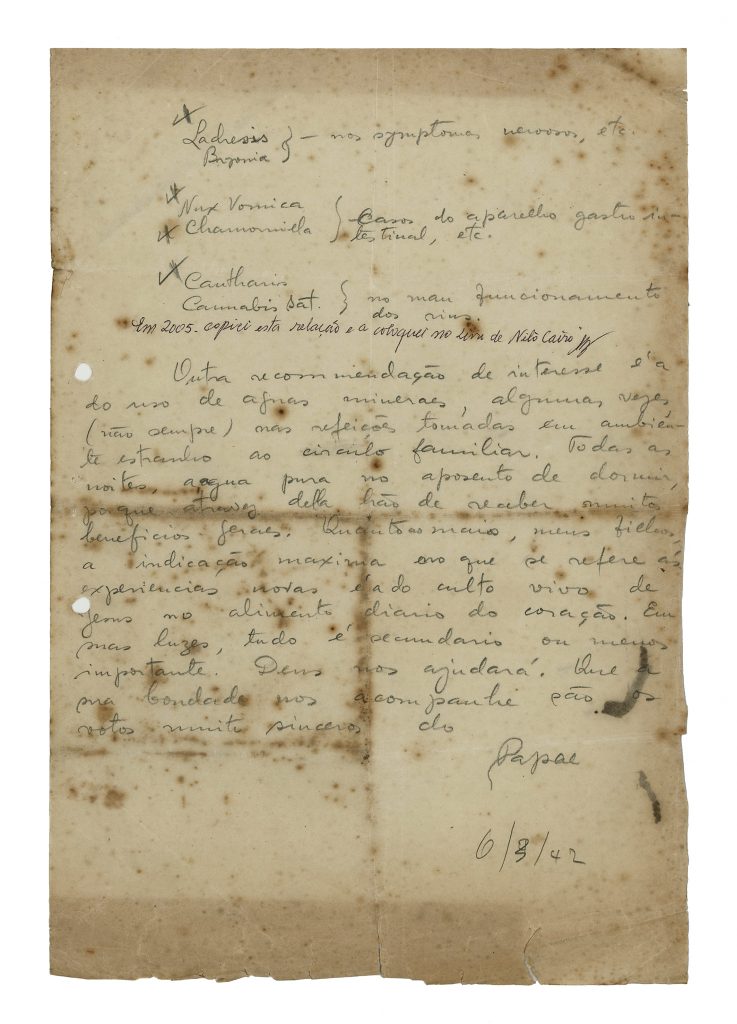 Lachesis } — nos symptomas nervosos, etc.
Bryonia
Nux Vomica } — Casos do aparelho gastro in-
Chamomiela testinal, etc.
Cantharis } no mau funcionamento
Cannabis Sat. dos rins.
Em 2005 - copiei esta relação e a coloquei no livro de Nilo Cairo
Outra recommendação de interesse é a
do uso de aguas mineraes, algumas vezes
(não sempre) nas refeições tomadas em ambien-
te estranho ao circulo familiar. Todas as
noites, agua pura no aposento de dormir,
porque atravez della hão de receber muitos
beneficios geraes. Quanto ao mais, meus filhos,
a indicação maxima no que se refere ás
experiencias novas é a do culto vivo de
Jesus no alimento diario do coração. Em
suas luzes, tudo é secundario ou menos
importante. Deus nos ajudará. Que a
sua bondade nos acompanhe são os
votos muito sinceros do
Papae
6/3/42